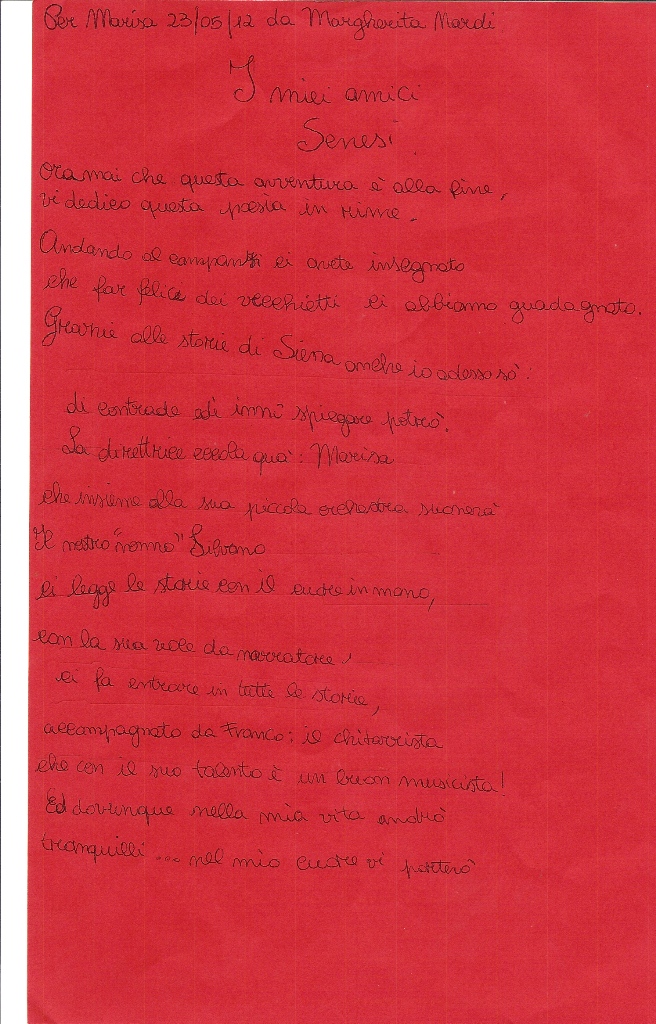 Per Marisa 23/05/12 da Margherita Mardi
I miei amici
Senesi
Oramai che questa avventura è alla fine,
vi dedico questa poesia in rime.
Andando al campansi ci avete insegnato
che far felice dei vecchietti ci abbiamo guadagnato.
Grazie alle storie di Siena anche io adesso sò:
di contrade ed inni spiegare potrò.
La direttrice eccola quà: Marisa
che insieme alla sua piccola orchestra suonerà
Il nostro "nonno" Silvano
ci legge le storie con il cuore in mano,
con la sua voce da narratore!
ci fa entrare in tutte le storie,
accompagnato da Franco: il chitarrista
che con il suo talento è un buon musicista!
Ed dovunque nella mia vita andrò
tranquilli ... nel mio cuore vi porterò